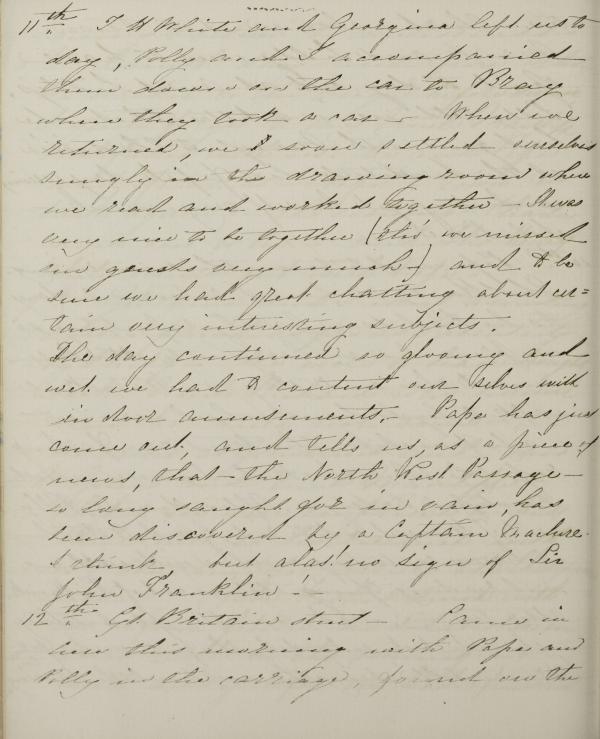 11th. T H White and Georgina left us to
day, Polly and I accompanied
them down on the car to Bray
where they took a car - When we
returned, we soon settled ourselves
snugly in the drawing room where
we read and worked together - It was
very nice to be together (tho' we missed
our guests very much -) and to be
sure we had great chatting about cer=
tain very interesting subjects.
The day continued so gloomy and
wet we had to content our selves with
in door amusements. - Papa has just
come out, and tells us, as a piece of
news, that - the North West Passage -
so long saught for in vain, has
been discovered by a Captain
I think, but alas! no sign of Sir
John Franklin! -
12th. Gt. Britain street - Came in
here this morning with Papa and
Polly in the carriage, found on the